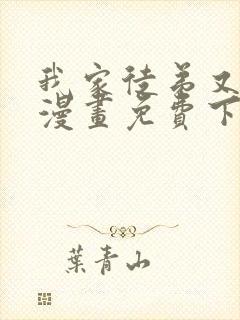 我家徒弟又
漫畫免費下
葉青山